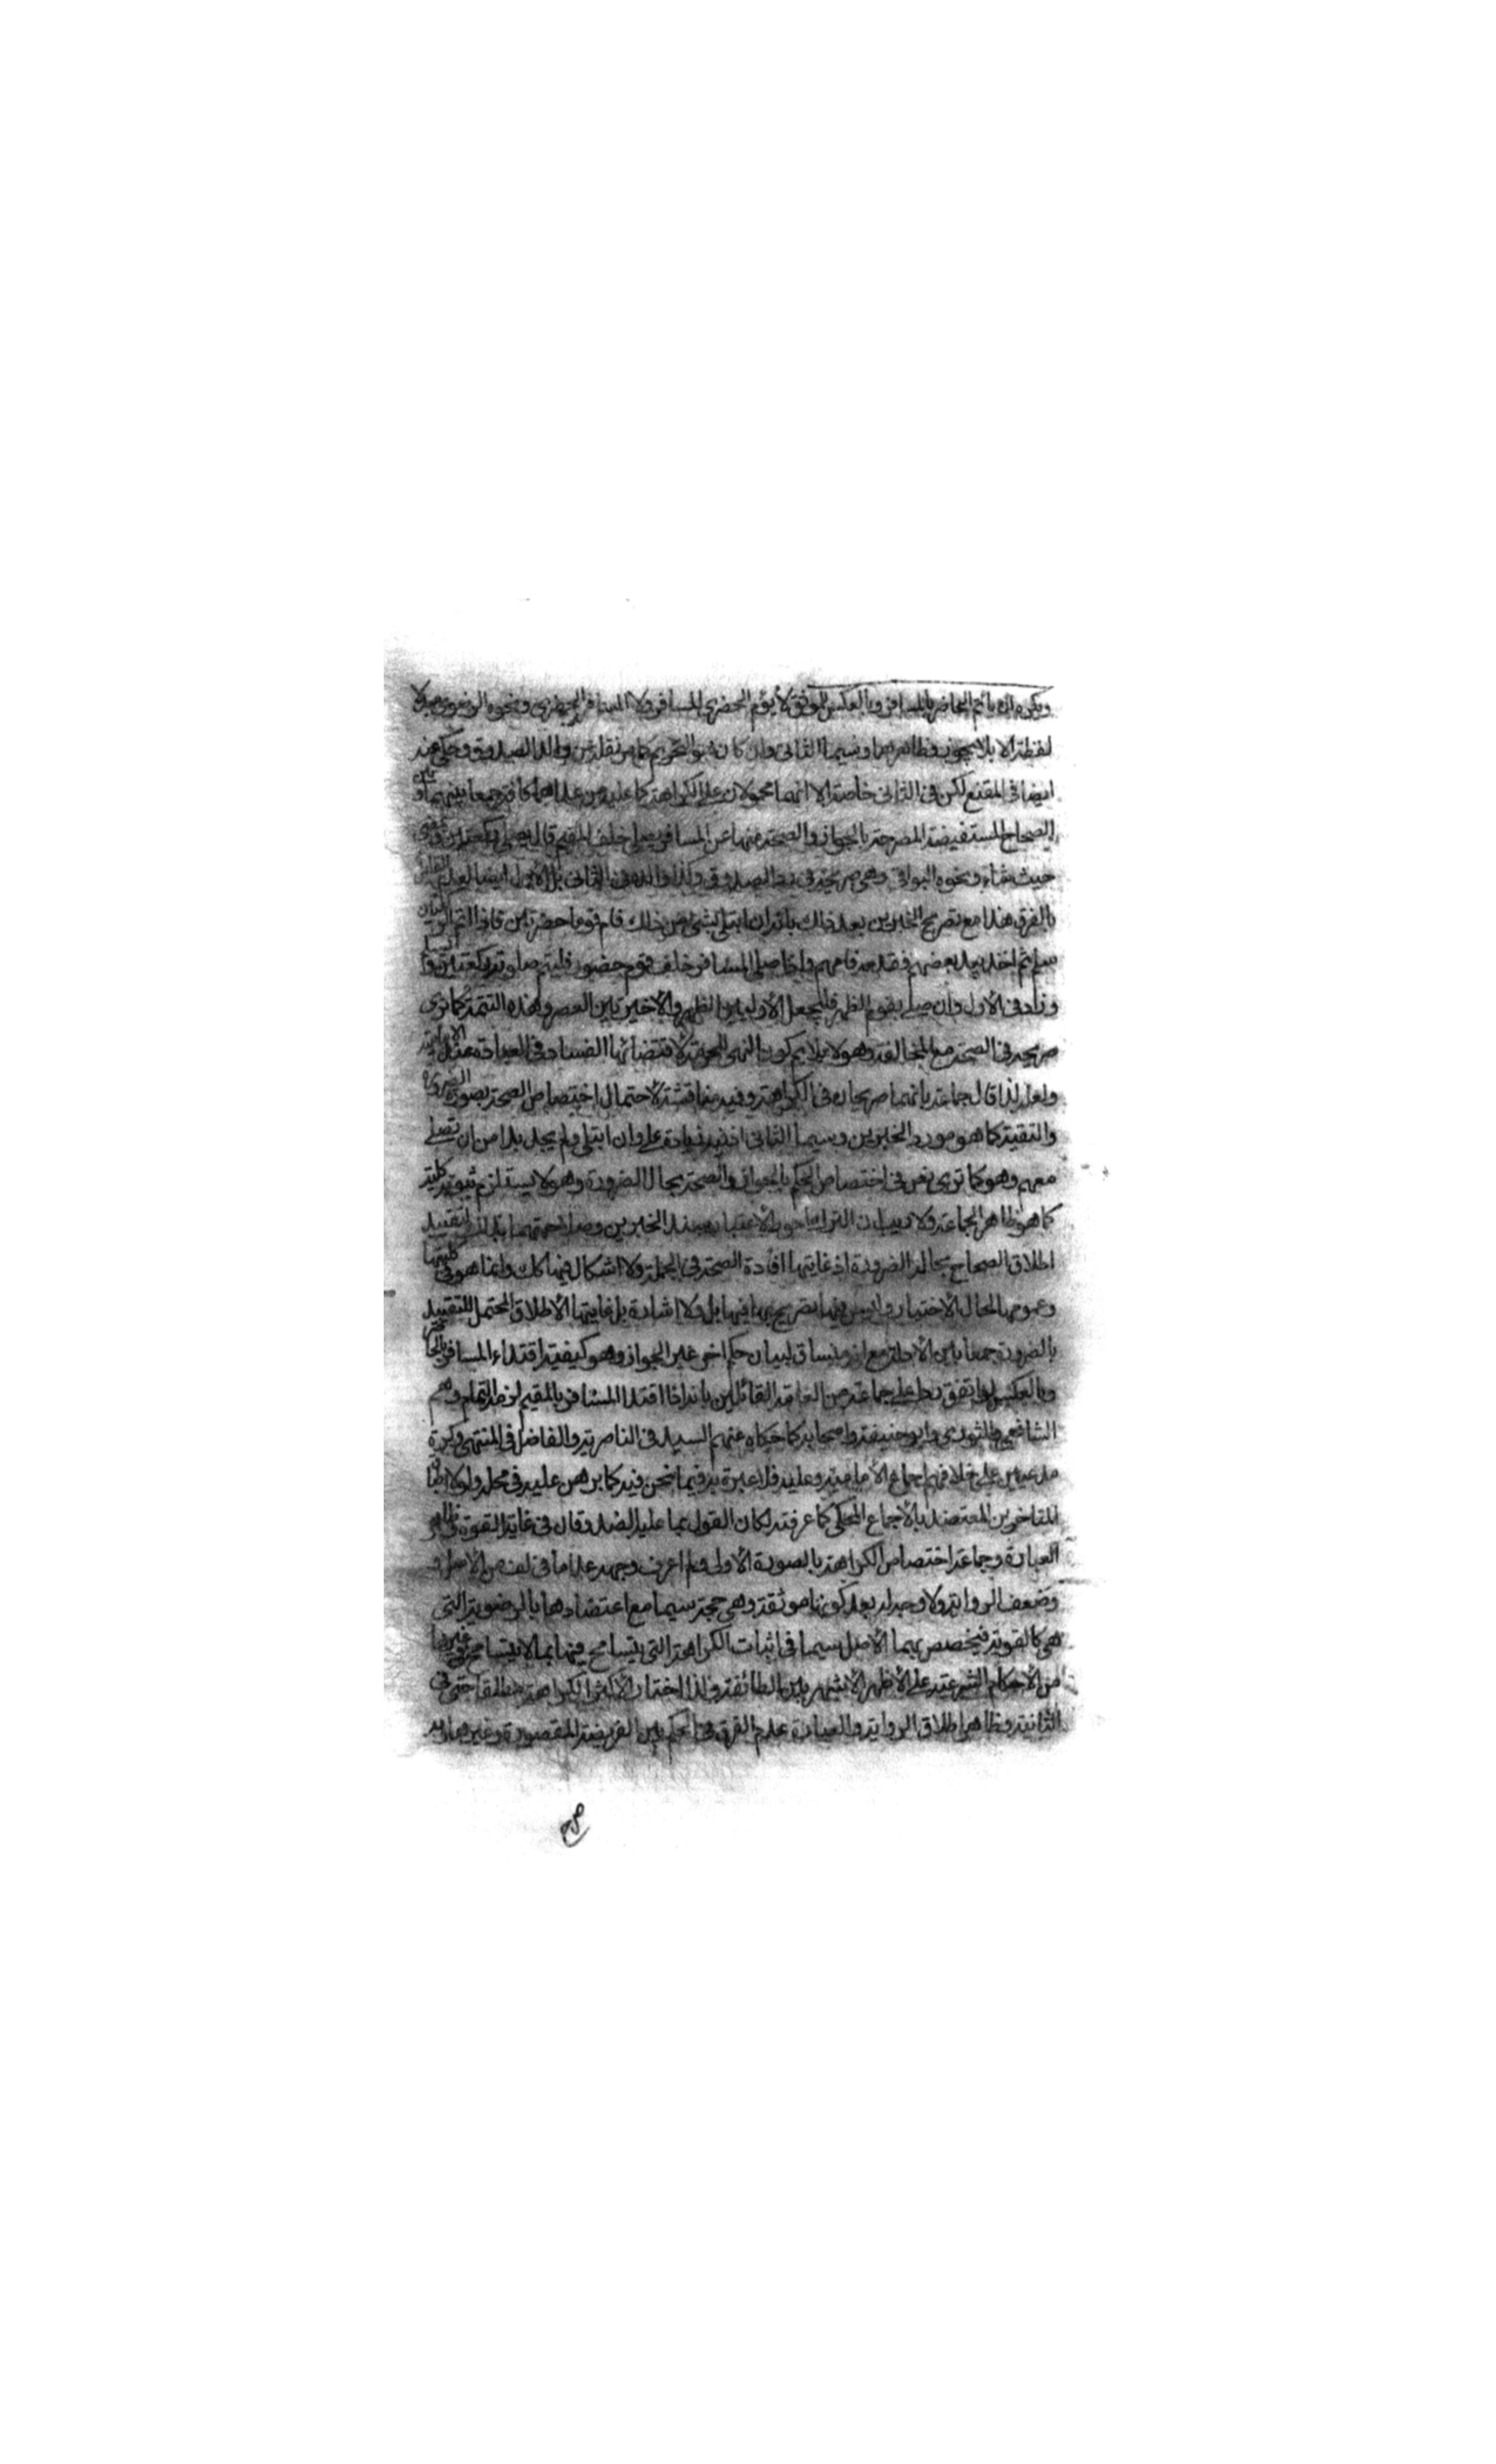 ويكره ان يأتم الحاضر بالمسافر وبالعكس للموثق لا يؤم الحضري المسافر ولا المسافر الحضري ونحوه الرضوي مبدلا
لفظة لا بلا يجوز وظاهرهما وسيما الثاني وان كان هو التحريم كما مر نقله عن والد الصدوق وحكى عنه
ايضا في المقنع لكن في الثاني خاصة الا انهما محمولان على الكراهة كما عليه من عداهما كافة جمعا بينهما وبين
الصحاح المستفيضة المصرحة بالجواز والصحة منها عن المسافر يصلي خلف المقيم قال يصلي ركعتين ويمضي
حيث شاء ونحوه البواقي وهي صريحة في رد الصدوق وكذا والده في الثاني بل الأول ايضا لعدم القائل
بالفرق هذا مع تصريح الخبرين بعد ذلك بانه ان ابتلى بشيء من ذلك فام قوما حضرتين فاذا اتم الركعتين
سلم ثم اخذ بيد بعضهم فقدمه فامهم واذا صلى المسافر خلف قوم حضور فليتم صلوته ركعتين ويسلم
وزاد في الاول وان صلى بقوم الظهر فليجعل الأوليين الظهر والأخيرتين العصر وهذه التتمة كما ترى
صريحة في الصحة مع المخالفة وهو لا يلايم كون النهي للحرمة لاقتضائها الفساد في العبادة عند الامامية
ولعله لذا قال جماعة بانهما صريحان في الكراهة وفيه مناقشة لاحتمال اختصاص الصحة بصورة الضرورة
والتقية كما هو مورد الخبرين وسيما الثاني اذ فيه زيادة على وان ابتلي ولم يجد بدا من ان يصلي
معهم وهو كما ترى نص في اختصاص الحكم بالجواز والصحة بحال الضرورة وهو لا يستلزم ثبوته كلية
كما هو ظاهر الجماعة ولا ريب ان الترك احوط لاعتبار سند الخبرين وصراحتهما بذلك لتقييد
اطلاق الصحاح بحال الضرورة اذ غايتها افادة الصحة في الجملة ولا اشكال فيها كك وانما هو في كليتها
وعمومها لحال الاختيار وليس فيها تصريح بها فيها بل ولا اشارة بل غايتها الاطلاق المحتمل للتقييد
بالضرورة جمعا بين الأدلة مع انه منساق لبيان حكم اخر غير الجواز وهو كيفية اقتداء المسافر بالحاضر
وبالعكس لها تفق ردا على جماعة من العامة القائلين بانه اذا اقتدا المسافر بالمقيم لزمه التمام وهم
الشافعي والثوري وابو حنيفة واصحابه كما حكاه عنهم السيد في الناصرية والفاضل في المنتهى وكرة
مدعيين على خلافهم اجماع الامامية وعليه فلا عبرة به فيما نحن فيه كما برهن عليه في محله ولولا اطباق
المتاخرين المعتضد بالأجماع المحكي كما عرفته لكان القول بما عليه الصدوقان في غاية القوة ظاهر
العبارة وجماعة اختصاص الكراهة بالصورة الأولى ولم اعرف وجهه عدا ما في لف من الاصل و
وضعف الرواية ولا وجه له بعد كونها موثقة وهي حجة سيما مع اعتضادها بالرضوية التي
هي كالقوية فيخصص بهما الأصل سيما في اثبات الكراهة التي يتسامح فيها بما لا يتسامح في غيرها
من الأحكام الشرعية على الأظهر الأشهر بين الطائفة ولذا اختار الأكثر الكراهة مطلقا حتى في
الثانية وظاهر اطلاق الرواية والعبارة عدم الفرق في الحكم بين الفريضة المقصورة وغيرها